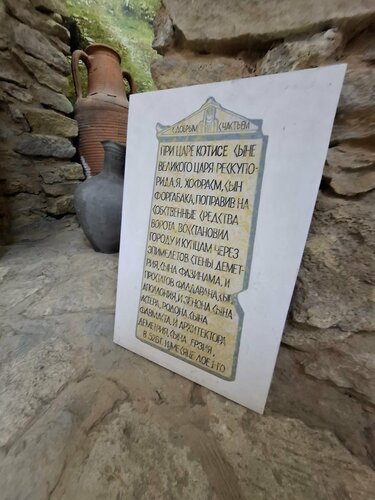 С ДОБРЫМ СЧАСТЬЕМ
ПРИ ЦАРЕ КОТИСЕ СЫНЕ
ВЕЛИКОГО ЦАРЯ РЕСКУПО-
РИДА, Я, ХОФРАСМ, СЫН
ФОРГАБАКА, ПОПРАВИВ НА
СОБСТВЕННЫЕ СРЕДСТВА
ВОРОТА, ВОССТАНОВИЛ
ГОРОДУ И КУПЦАМ ЧЕРЕЗ
ЭПИМЕЛЕТОВ СТЕНЫ ДЕМЕТ-
РИЯ, СЫНА ФАЗИНАМА, И
ПРОСТАТОВ ФАЛДАРАНА, СЫН.
АПОЛОНИЯ, И ЗЕНОНА СЫНА
ИСТЕРА, РОДОНА, СЫНА
И АРХИТЕКТОРА
ДЕМЕТРИЯ, СЫНА
В 526 Г. И МЕСЯЦЕ ЛОЕ 1-ГО